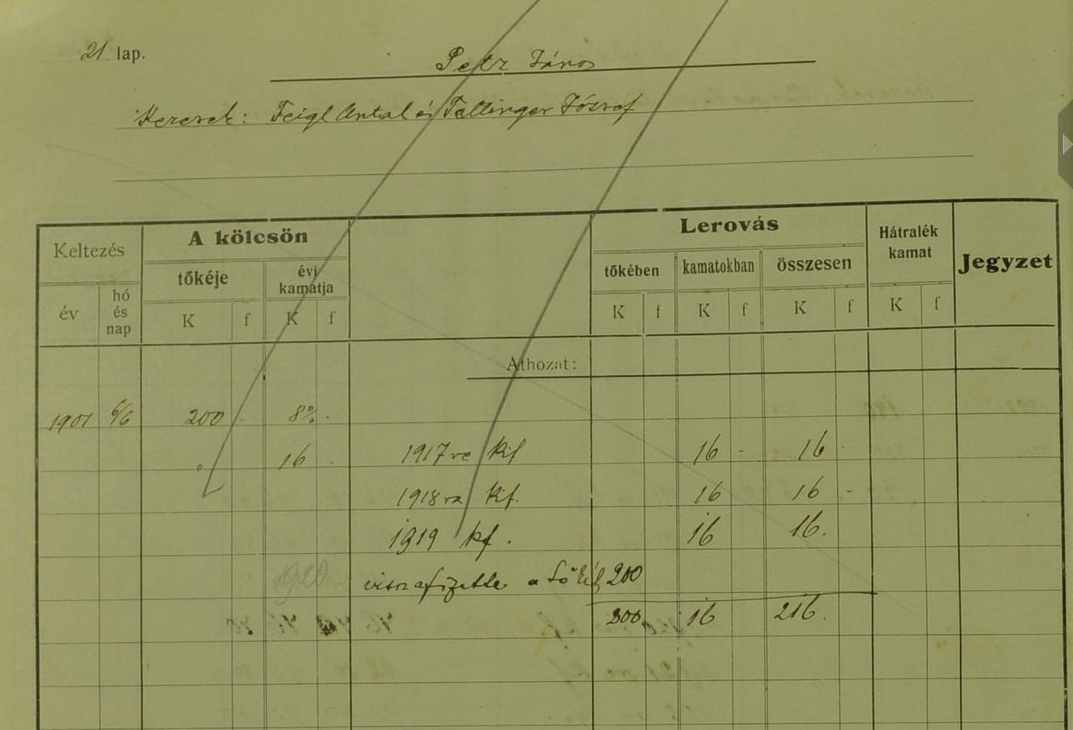 21. lap.
Petz János
Kezesek: Feigl Antal és Tallinger József
Keltezés
A kölcsön
Lerovás
Hátralék kamat
Jegyzet
tőkéje
évi kamatja
tőkében
kamatokban
összesen
év
hó és nap
K f K f K f K f K f K f
Áthozat:
1901 6/6 200 - 8% -
" 16 - 1917 re kif 16 - 16 -
1918 ra kif. 16 16 -
1919 kif. 16 16.
visszafizette a tőkét 200
200 16 216.